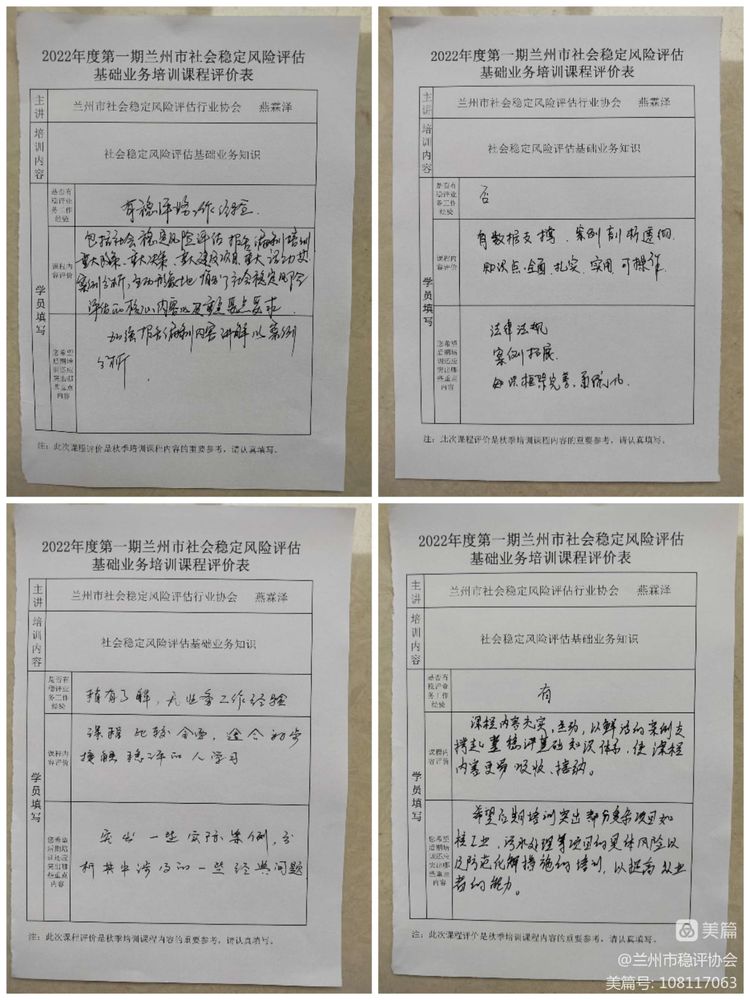 2022年度第一期兰州市社会稳定风险评估
基础业务培训课程评价表
主讲
兰州市社会稳定风险评估行业协会 燕霖泽
培训内容
社会稳定风险评估基础业务知识
学员填写
是否有
稳评业
务工作
经验
有稳评工作经验.
课程内
容评价
包括社会稳定风险评估报告编制培训
重大政策、重大决策、重大建设项目、重大活动等
案例分析,生动形象地指出了社会稳定风险
评估的核心内容以及重点要点要求
您希望
后期培
训还应
突出哪
些重点
内容
加强报告编制内容讲解以案例
分析.
注:此次课程评价是秋季培训课程内容的重要参考,请认真填写。
2022年度第一期兰州市社会稳定风险评估
基础业务培训课程评价表
主讲
兰州市社会稳定风险评估行业协会 燕霖泽
培训内容
社会稳定风险评估基础业务知识
学员填写
是否有
稳评业
务工作
经验
否
课程内
容评价
有数据支撑、案例剖析透彻
知识点全面、扎实、实用、可操作.
您希望
后期培
训还应
突出哪
些重点
内容
法律法规
案例拓展.
知识框架完善、系统化
注:此次课程评价是秋季培训课程内容的重要参考,请认真填写。
2022年度第一期兰州市社会稳定风险评估
基础业务培训课程评价表
主讲
兰州市社会稳定风险评估行业协会 燕霖泽
培训内容
社会稳定风险评估基础业务知识
学员填写
是否有
稳评业
务工作
经验
稍有了解,无业务工作经验
课程内
容评价
课程比较全面,适合初步
接触稳评的人学习
您希望
后期培
训还应
突出哪
些重点
内容
突出一些实际案例,分
析其中涉及的一些经典问题
注:此次课程评价是秋季培训课程内容的重要参考,请认真填写。
2022年度第一期兰州市社会稳定风险评估
基础业务培训课程评价表
主讲
兰州市社会稳定风险评估行业协会 燕霖泽
培训内容
社会稳定风险评估基础业务知识
学员填写
是否有
稳评业
务工作
经验
有
课程内
容评价
课程内容充实,生动,以鲜活的案例支
撑起整稳评基础知识体系,使课程
内容更易吸收、接纳。
您希望
后期培
训还应
突出哪
些重点
内容
希望后期培训突出部分复杂项目如
核工业,污水处理等项目的具体风险以
及防范化解措施的培训,以提高从业
者的能力。
注:此次课程评价是秋季培训课程内容的重要参考,请认真填写。
美篇
@兰州市稳评协会
美篇号: 108117063